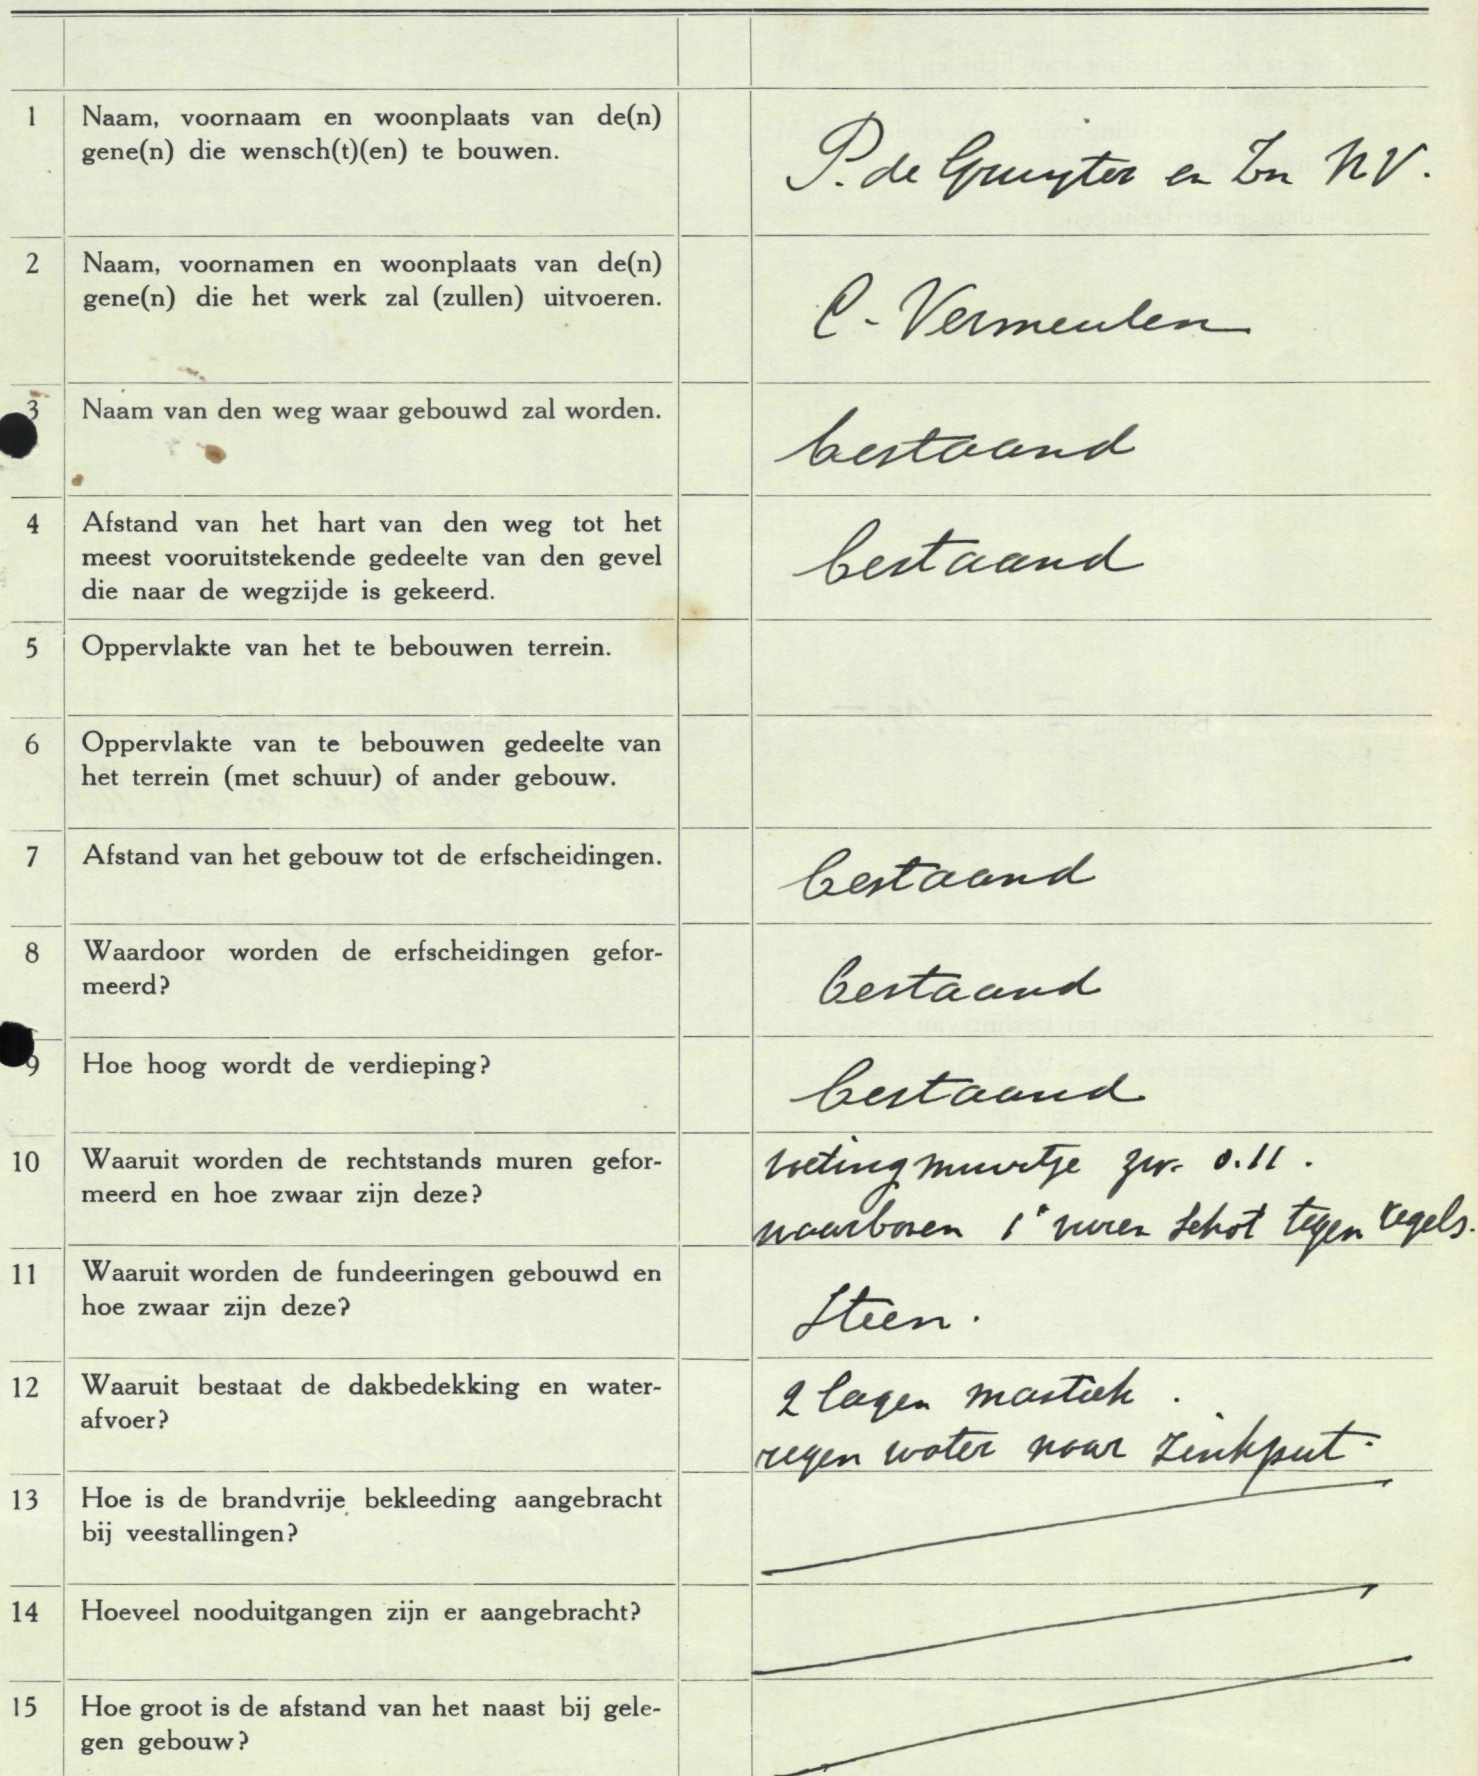 1 Naam, voornaam en woonplaats van de(n)
gene(n) die wensch(t)(en) te bouwen.
P. de Gruyter en Zn NV.
2 Naam, voornamen en woonplaats van de(n)
gene(n) die het werk zal (zullen) uitvoeren.
C. Vermeulen
3 Naam van den weg waar gebouwd zal worden.
bestaand
4 Afstand van het hart van den weg tot het
meest vooruitstekende gedeelte van den gevel
die naar de wegzijde is gekeerd.
bestaand
5 Oppervlakte van het te bebouwen terrein.
6 Oppervlakte van te bebouwen gedeelte van
het terrein (met schuur) of ander gebouw.
7 Afstand van het gebouw tot de erfscheidingen.
bestaand
8 Waardoor worden de erfscheidingen gefor-
meerd?
bestaand
9 Hoe hoog wordt de verdieping?
bestaand
10 Waaruit worden de rechtstands muren gefor-
meerd en hoe zwaar zijn deze?
voetingmuurtje zw. 0.11.
waarboven 1" vuren schot tegen regels.
11 Waaruit worden de fundeeringen gebouwd en
hoe zwaar zijn deze?
Steen.
12 Waaruit bestaat de dakbedekking en water-
afvoer?
2 lagen mastiek.
regen water naar zinkput.
13 Hoe is de brandvrije bekleeding aangebracht
bij veestallingen?
14 Hoeveel nooduitgangen zijn er aangebracht?
15 Hoe groot is de afstand van het naast bij gele-
gen gebouw?